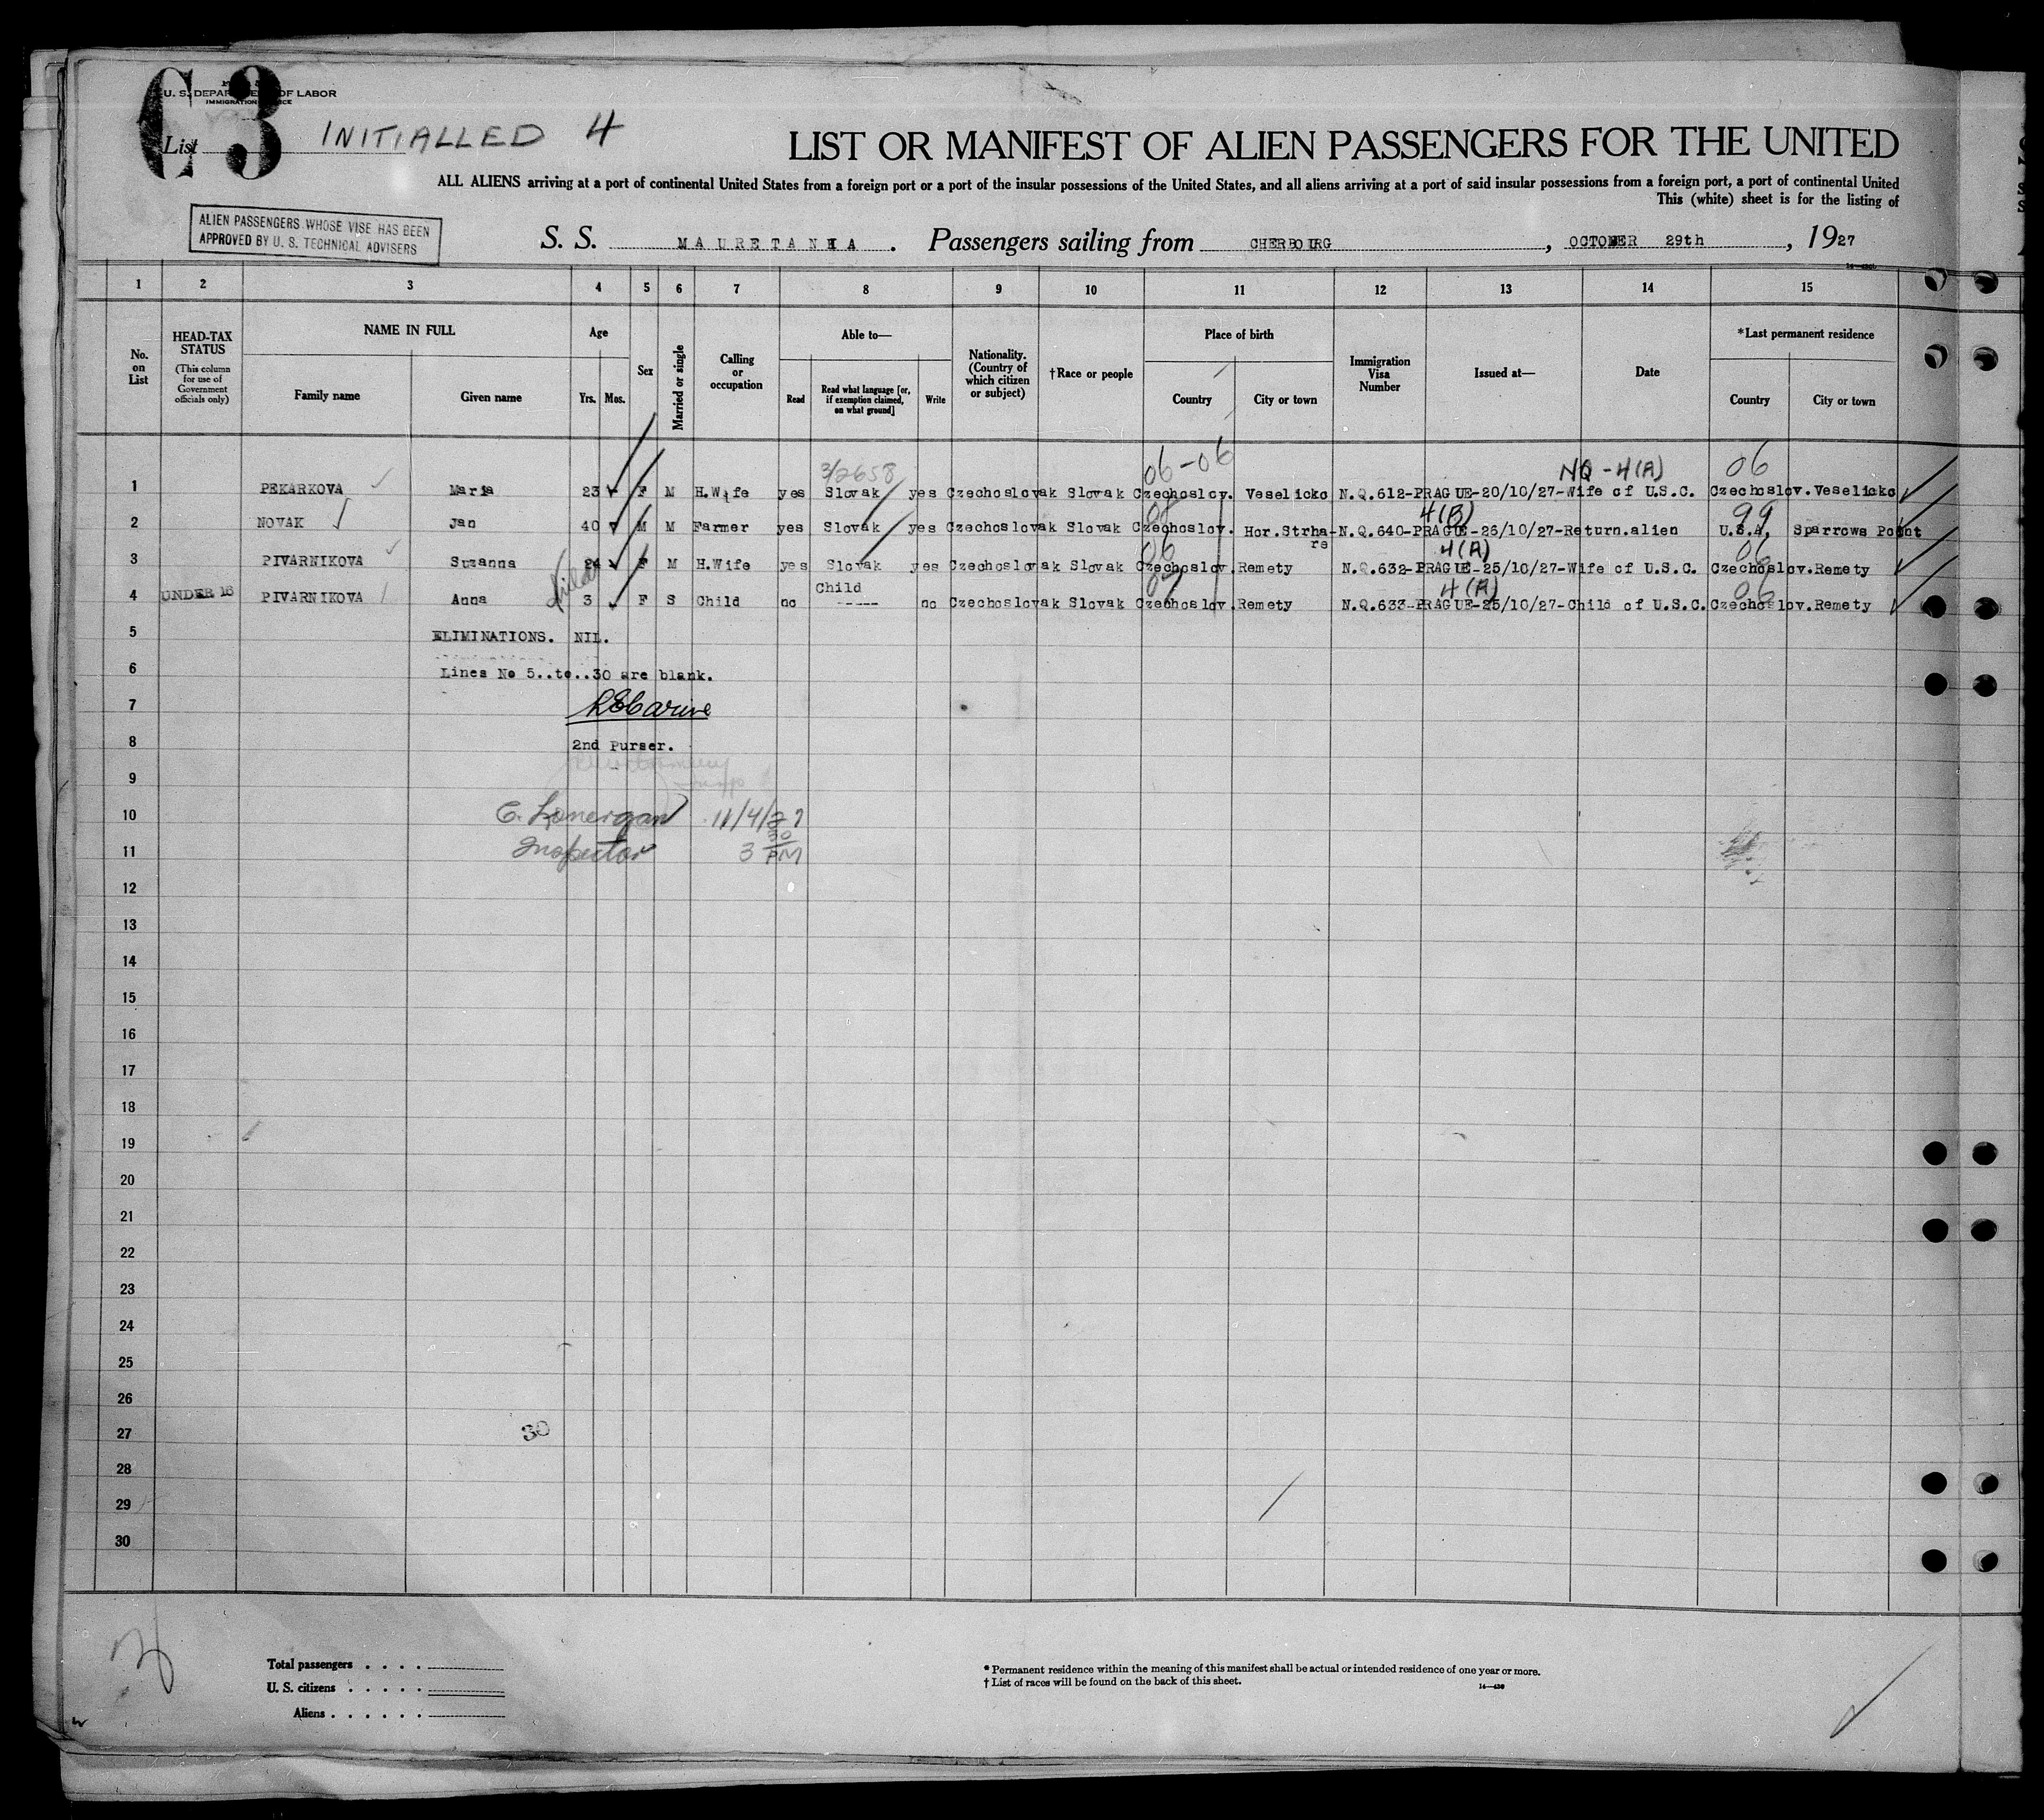 63
U. S. DEPARTMENT OF LABOR
IMMIGRATION SERVICE
List
INITIALLED 4
LIST OR MANIFEST OF ALIEN PASSENGERS FOR THE UNITED
ALL ALIENS arriving at a port of continental United States from a foreign port or a port of the insular possessions of the United States, and all aliens arriving at a port of said insular possessions from a foreign port, a port of continental United
This (white) sheet is for the listing of
ALIEN PASSENGERS WHOSE VISE HAS BEEN
APPROVED BY U. S. TECHNICAL ADVISERS
S. S. MAURETANIA. Passengers sailing from CHERBOURG, OCTOBER 29th, 1927
1 2 3 4 5 6 7 8 9 10 11 12 13 14 15
No. on List
HEAD-TAX STATUS
(This column for use of Government officials only)
NAME IN FULL
Family name Given name
Age
Yrs. Mos.
Sex
Married or single
Calling or occupation
Able to—
Read Read what language [or, if exemption claimed, on what ground] Write
Nationality. (Country of which citizen or subject)
†Race or people
Place of birth
Country City or town
Immigration Visa Number
Issued at—
Date
*Last permanent residence
Country City or town
3/2658 06-06 NQ-4(A) 06
1 PEKARKOVA Maria 23 F M H.Wife yes Slovak yes Czechoslovak Slovak Czechoslov. Veselicko N.Q.612-PRAGUE-20/10/27-Wife of U.S.C. Czechoslov. Veselicko
4(B) 99
2 NOVAK Jan 40 M M Farmer yes Slovak yes Czechoslovak Slovak Czechoslov. Hor.Strha-rs N.Q.640-PRAGUE-26/10/27-Return.alien U.S.A. Sparrows Point
06 4(A) 06
3 PIVARNIKOVA Suzanna 24 F M H.Wife yes Slovak yes Czechoslovak Slovak Czechoslov. Remety N.Q.632-PRAGUE-25/10/27-Wife of U.S.C. Czechoslov. Remety
Child 4(A) 06
4 UNDER 16 PIVARNIKOVA Anna 3 F S Child no ----- no Czechoslovak Slovak Czechoslov. Remety N.Q.633-PRAGUE-25/10/27-Child of U.S.C. Czechoslov. Remety
5 ELIMINATIONS. NIL.
6 Lines No 5..to..30 are blank.
7
8 2nd Purser.
9
10 C. Lonergan 11/4/27
11 Inspector 3 30 PM
12
13
14
15
16
17
18
19
20
21
22
23
24
25
26
27 30
28
29
30
Total passengers . . . .
U. S. citizens . . . . .
Aliens . . . . . .
* Permanent residence within the meaning of this manifest shall be actual or intended residence of one year or more.
† List of races will be found on the back of this sheet.